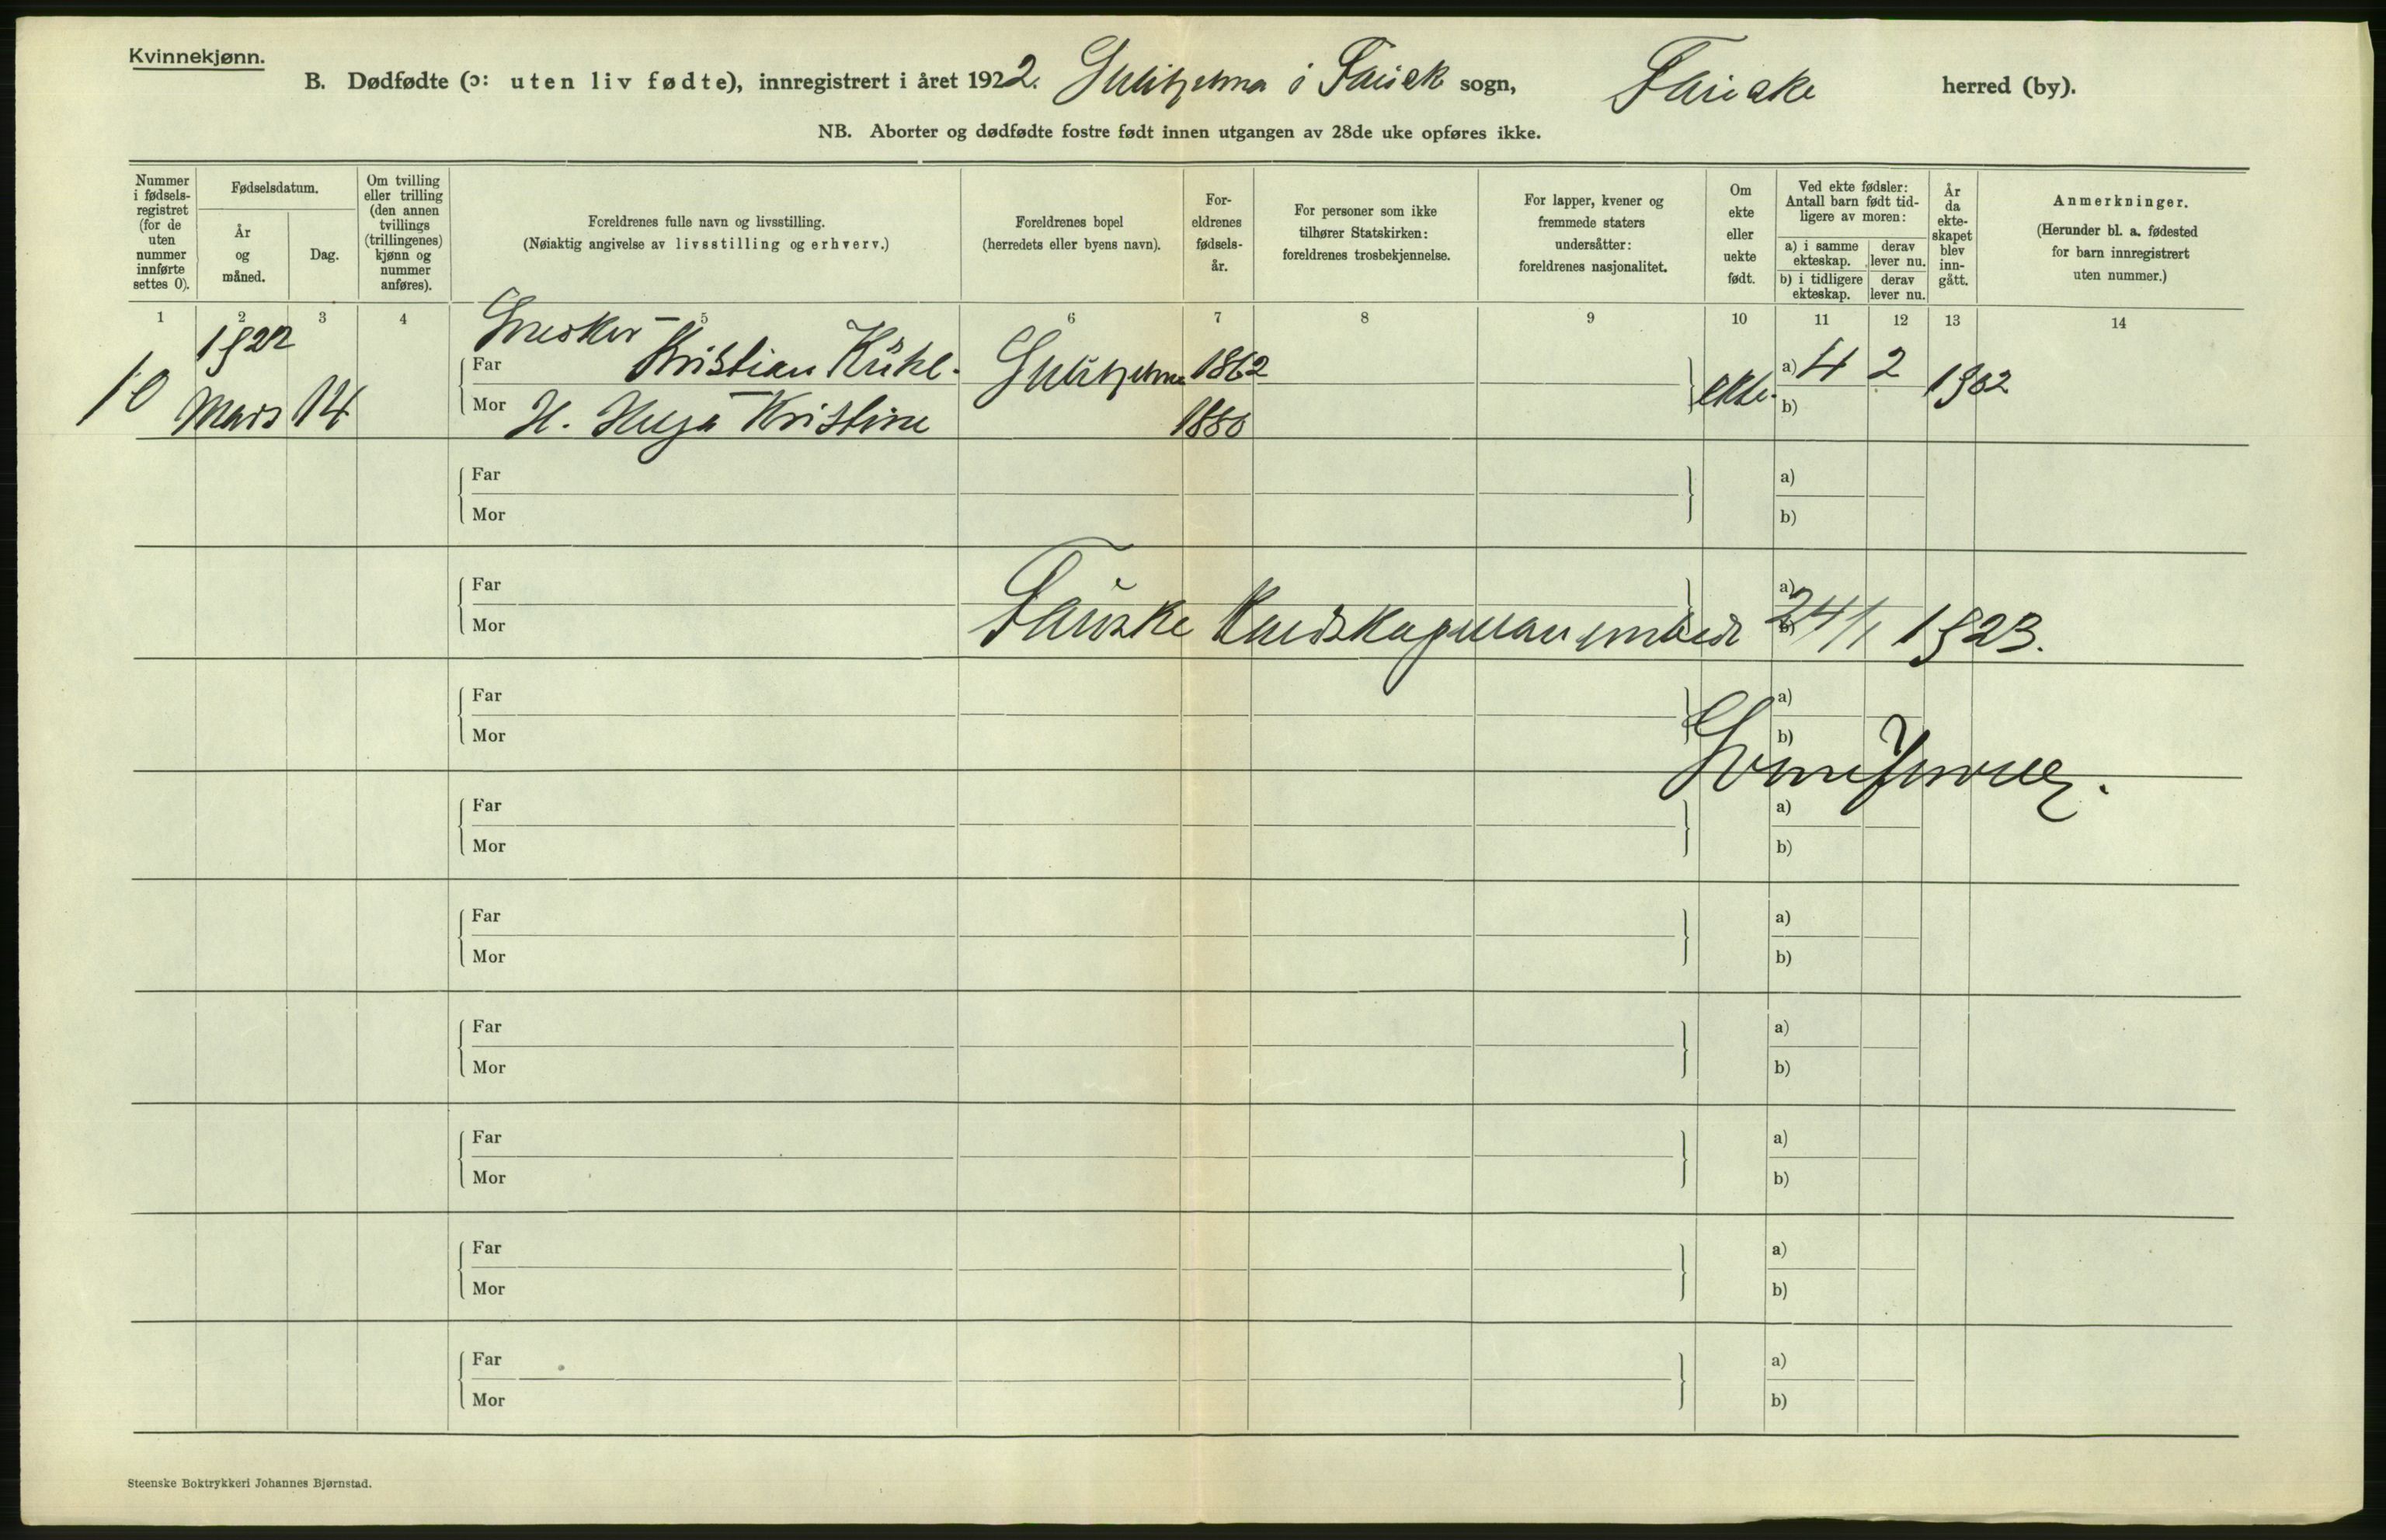 Kvinnekjønn.
B. Dødfødte (ɔ: uten liv fødte), innregistrert i året 1922. Sulitjelma i Fausk sogn, Fauske herred (by).
NB. Aborter og dødfødte fostre født innen utgangen av 28de uke opføres ikke.
Nummer i fødsels-registret (for de uten nummer innførte settes 0).
Fødselsdatum.
År og måned.
Dag.
Om tvilling eller trilling (den annen tvillings (trillingenes) kjønn og nummer anføres).
Foreldrenes fulle navn og livsstilling.
(Nøiaktig angivelse av livsstilling og erhverv.)
Foreldrenes bopel
(herredets eller byens navn).
For-eldrenes fødsels-år.
For personer som ikke tilhører Statskirken: foreldrenes trosbekjennelse.
For lapper, kvener og fremmede staters undersåtter: foreldrenes nasjonalitet.
Om ekte eller uekte født.
Ved ekte fødsler: Antall barn født tid-ligere av moren:
a) i samme ekteskap.
derav lever nu.
b) i tidligere ekteskap.
derav lever nu.
År da ekte-skapet blev inn-gått.
Anmerkninger.
(Herunder bl. a. fødested for barn innregistrert uten nummer.)
1 2 3 4 5 6 7 8 9 10 11 12 13 14
1922 Snekker
Far Kristian Kühl. Sulitjelma 1862 a) 4 2
10 Mars 14 ekte. 1902
Mor H. Kristine 1880 b)
Far a)
Mor b)
Far a)
Fauske 24/1 1923.
Mor b)
Far a)
Mor b)
Far a)
Mor b)
Far a)
Mor b)
Far a)
Mor b)
Far a)
Mor b)
Far a)
Mor b)
Far a)
Mor b)
Steenske Boktrykkeri Johannes Bjørnstad.